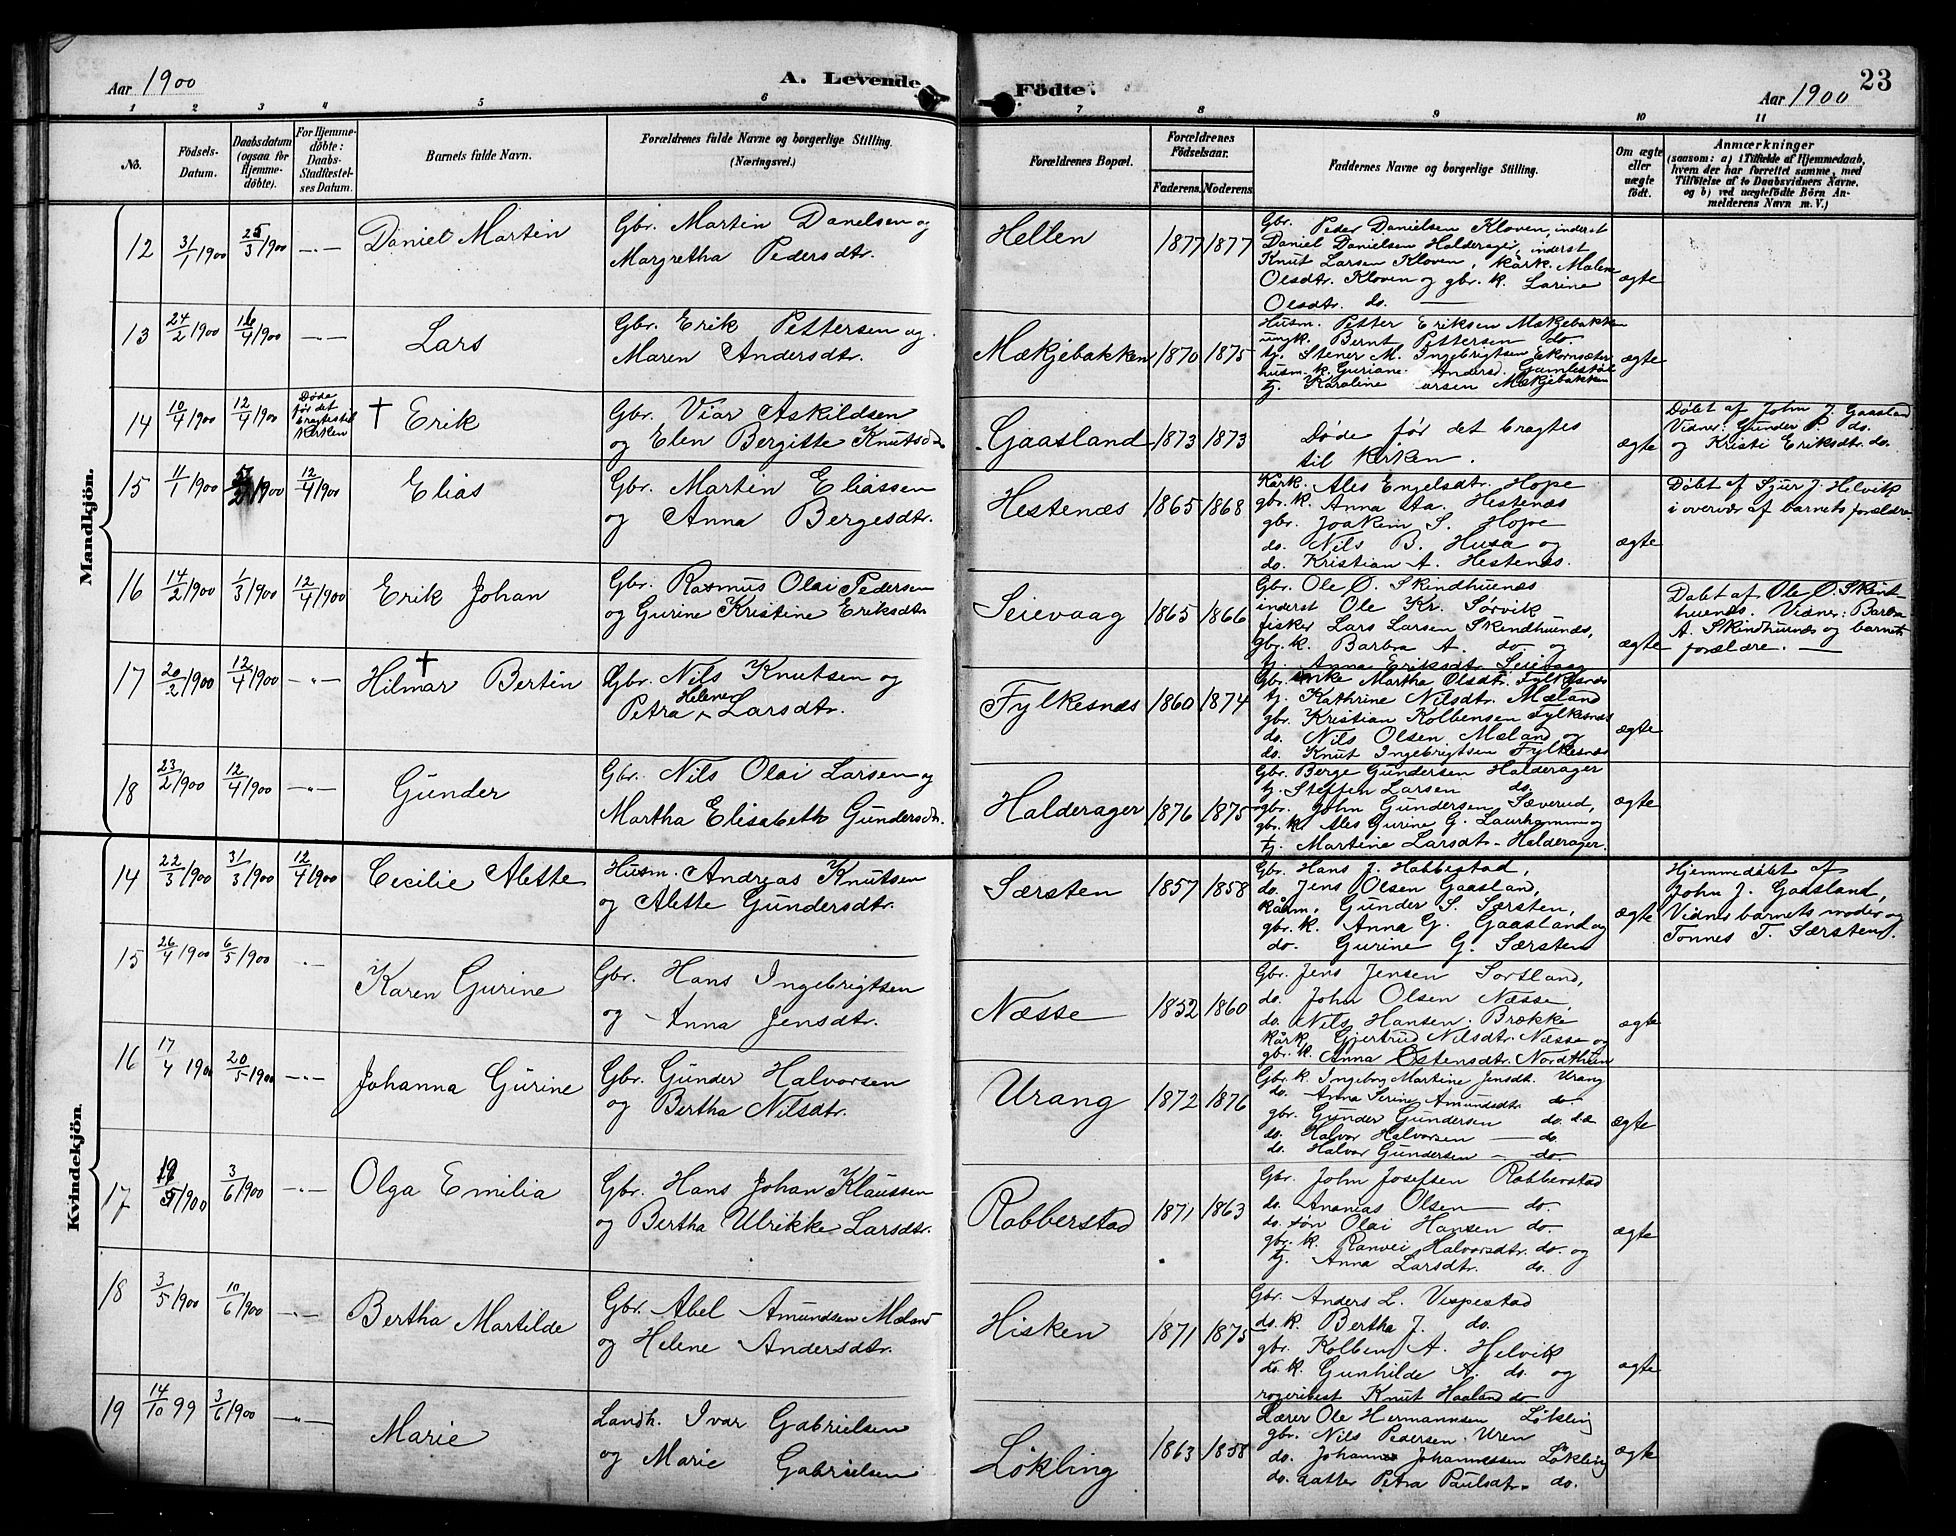 Aar 1900
A. Levende
Fødte.
Aar 1900
23
1 2 3 4 5 6 7 8 9 10 11
No.
Fødsels-Datum.
Daabsdatum (ogsaa for Hjemme-døbte).
For Hjemme-døbte: Daabs-Stadfæstel-ses Datum.
Barnets fulde Navn.
Forældrenes fulde Navne og borgerlige Stilling. (Næringsvei.)
Forældrenes Bopæl.
Forældrenes Fødselsaar.
Faderens. Moderens.
Faddernes Navne og borgerlige Stilling.
Om ægte eller uægte født.
Anmærkninger
(saasom: a) i Tilfælde af Hjemmedaab,
hvem der har forrettet samme, med
Tilføielse af to Daabsvidners Navne.
og b) ved uægtefødte Børn An-
melderens Navn m. V.)
Mandkjön.
12 31/1 1900 25/3 1900 —"— Daniel Martin
Gbr. Martin Danelsen og
Margretha Pedersdtr.
Hellen 1877 1877
Gbr. Peder Danielsen Kloven, inderst
Daniel Danielsen Halderager, inderst
Knut Larsen Kloven, Kårk. Malene
Olsdtr. Kloven og gbr. k. Larine
Olsdtr. do. —
ægte
13 24/2 1900 16/4 1900 —"— Lars
Gbr. Erik Pettersen og
Maren Andersdtr.
Mækjebakken 1870 1875
Husm. Petter Eriksen Mækjebakken
ungk. Bernt Pettersen do.
tj. Stener M. Ingebrigtsen Ekornsæter
husm. k. Guriane Andersd. Gamlestøl
tj. Karoline Mækjebakken
ægte
14 10/4 1900 12/4 1900
Døde før det bragtes til Kirken
† Erik
Gbr. Viar Askildsen
og Elen Bergitte Knutsd.
Gaasland 1873 1873
Døde før det bragtes
til kirken.
ægte
Døbt af John J. Gaasland
Vidner: Gunder P. do.
og Kristi Eriksdtr. do.
15 11/1 1900 12/4 1900 Elias
Gbr. Martin Eliassen
og Anna Bergesdtr.
Hestenæs 1865 1868
Kårk. Ales Engelsdtr. Hope
gbr. k. Anna Aa. Hestenæs
gbr. Joakim S. Hope
do. Nils B. Husa og
do. Kristian A. Hestenæs.
ægte
Døbt af Sjur J. Helvik
i overvær af barnets forældre.
16 14/2 1900 1/3 1900 12/4 1900 Erik Johan
Gbr. Rasmus Olai Pedersen
og Gurine Kristine Eriksdtr.
Seievaag 1865 1866
Gbr. Ole Ø. Skindhuenæs
inderst Ole Kr. Sørvik
fisker Lars Larsen Skindhuenæs,
gbr. k. Barbra A. do. og
tj. Anna Eriksdtr. Seievaag
ægte
Døbt af Ole Ø. Skind-
huenæs. Vidner: Barbra
A. Skindhuenæs og barnets
forældre. —
17 20/2 1900 12/4 1900 —"— Hilmar † Bertin
Gbr. Nils Knutsen og
Petra Helene Larsdtr.
Fylkesnæs 1860 1874
Gbr. enke Martha Olsdtr. Fylkesnæs
tj. Kathrine Nilsdtr. Mæland
gbr. Kristian Kolbensen Fylkesnæs
do. Nils Olsen Mæland og
do. Knut Ingebrigtsen Fylkesnæs
ægte
18 23/2 1900 12/4 1900 —"— Gunder
Gbr. Nils Olai Larsen og
Martha Elisabeth Gundersdtr.
Halderager 1876 1875
Gbr. Berge Gundersen Halderager
tj. Steffen Larsen do.
gbr. John Gundersen Sæverud,
gbr. k. Ales Gurine G. Laurhammer og
tj. Martine Larsdtr. Halderager.
ægte
Kvindekjön.
14 22/3 1900 31/3 1900 12/4 1900 Cecilie Alette
Husm. Andreas Knutsen
og Alette Gundersdtr.
Særsten 1857 1858
Gbr. Hans J. Habbestad,
do. Jens Olsen Gaasland,
Kårm. Gunder S. Særsten,
gbr. k. Anna G. Gaasland og
do. Gurine G. Særsten
ægte
Hjemmedøbt af
John J. Gaasland,
Vidner barnets moder og
Tønnes T. Særsten.
15 26/4 1900 6/5 1900 —"— Karen Gurine
Gbr. Hans Ingebrigtsen
og Anna Jensdtr.
Næsse 1852 1860
Gbr. Jens Jensen Sortland,
do. John Olsen Næsse,
do. Nils Hansen Brække,
Kårk. Gjertrud Nilsdtr. Næsse og
gbr. k. Anna Østensdtr. Nordthun
ægte
16 17/4 1900 20/5 1900 —"— Johanna Gurine
Gbr. Gunder Halvorsen
og Bertha Nilsdtr.
Urang 1872 1876
Gbr. k. Ingebrg Martine Jensdt. Urang
do. Anna Serine Amundsdtr. do.
gbr. Gunder Gundersen do.
do. Halvor Halvorsen — do.
do. Halvor Gundersen — do.
ægte
17 5/1900 3/6 1900 —"— Olga Emilia
Gbr. Hans Johan Klaussen
og Bertha Ulrikke Larsdtr.
Robberstad 1871 1863
Gbr. John Josefsen Robberstad
do. Ananias Olsen — do.
do. søn Olai Hansen do.
gbr. k. Ranvei Halvorsdtr. do. og
tj. Anna Larsdtr. do.
ægte
18 3/5 1900 10/6 1900 —"— Bertha Martilde
Gbr. Abel Amundsen Mæland
og Helene Andersdtr.
Hisken 1871 1875
Gbr. Anders L. Vespestad
do. k. Bertha J. do.
gbr. Kolben A. Helvik
do. k. Gunhilde A. do. og
Knut Haaland do.
ægte
19 14/10 99 3/6 1900 —"— Marie
Landh. Ivar Gabrielsen
og Marie Gabrielsen
Løkling 1863 1858
Lærer Ole Hermannsen Løkling
gbr. Nils Pedersen Uren
do. Johannes Johannessen Løkling
do. datter Petra Paulsdtr. do.
ægte